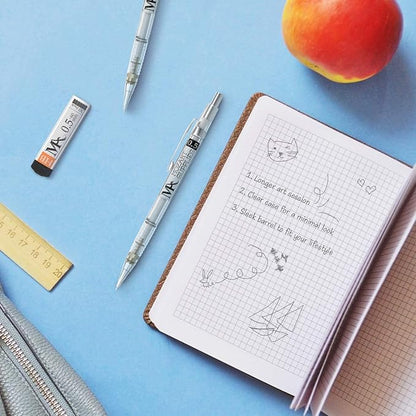 0.5mm
1. Longer art session
2. Clear case for a minimal look
3. Sleek barrel to fit your lifestyle
15 16 17 18 19 20